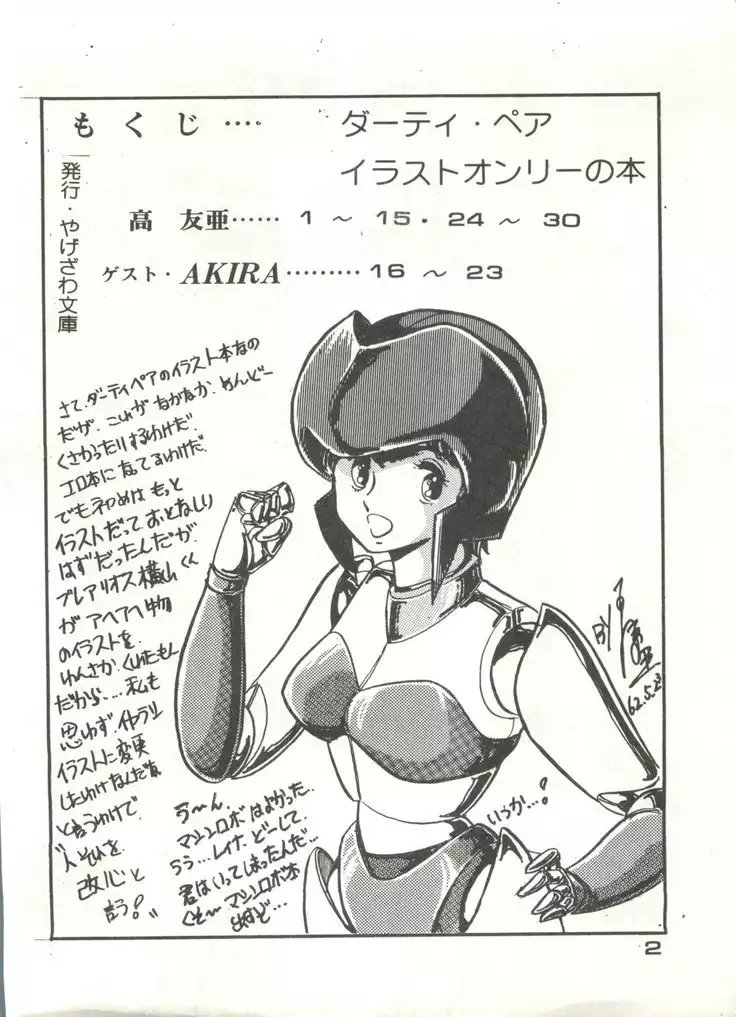 もくじ‥‥
ダーティ・ペア
イラストオンリーの本
発行・やげざわ文庫
高 友亜‥‥‥ 1 ～ 15・24 ～ 30
ゲスト・AKIRA‥‥‥‥‥16 ～ 23
さて、ダーティペアのイラスト本なの
だが、これがなかなか、めんどー
くさかったりするわけだ
エロ本になってるわけだ
でもネわめは もっと
イラストだって、おとなしい
はずだったんだが
ブレアリオス横山くん
がアヘアヘ物
のイラストを
わんさか、くれたもん
だから‥‥私も
思わず、イヤラシ
イラストに変更
したわけなんだな
と言うわけで
"人それを
改心と
言う!"
う～ん、
マシンロボはよかった‥
うう‥レイナ、どーして、
君はいってしまったんだ‥
くそ～マシンロボ本
出すど‥
いつか‥!
62.5.23
2